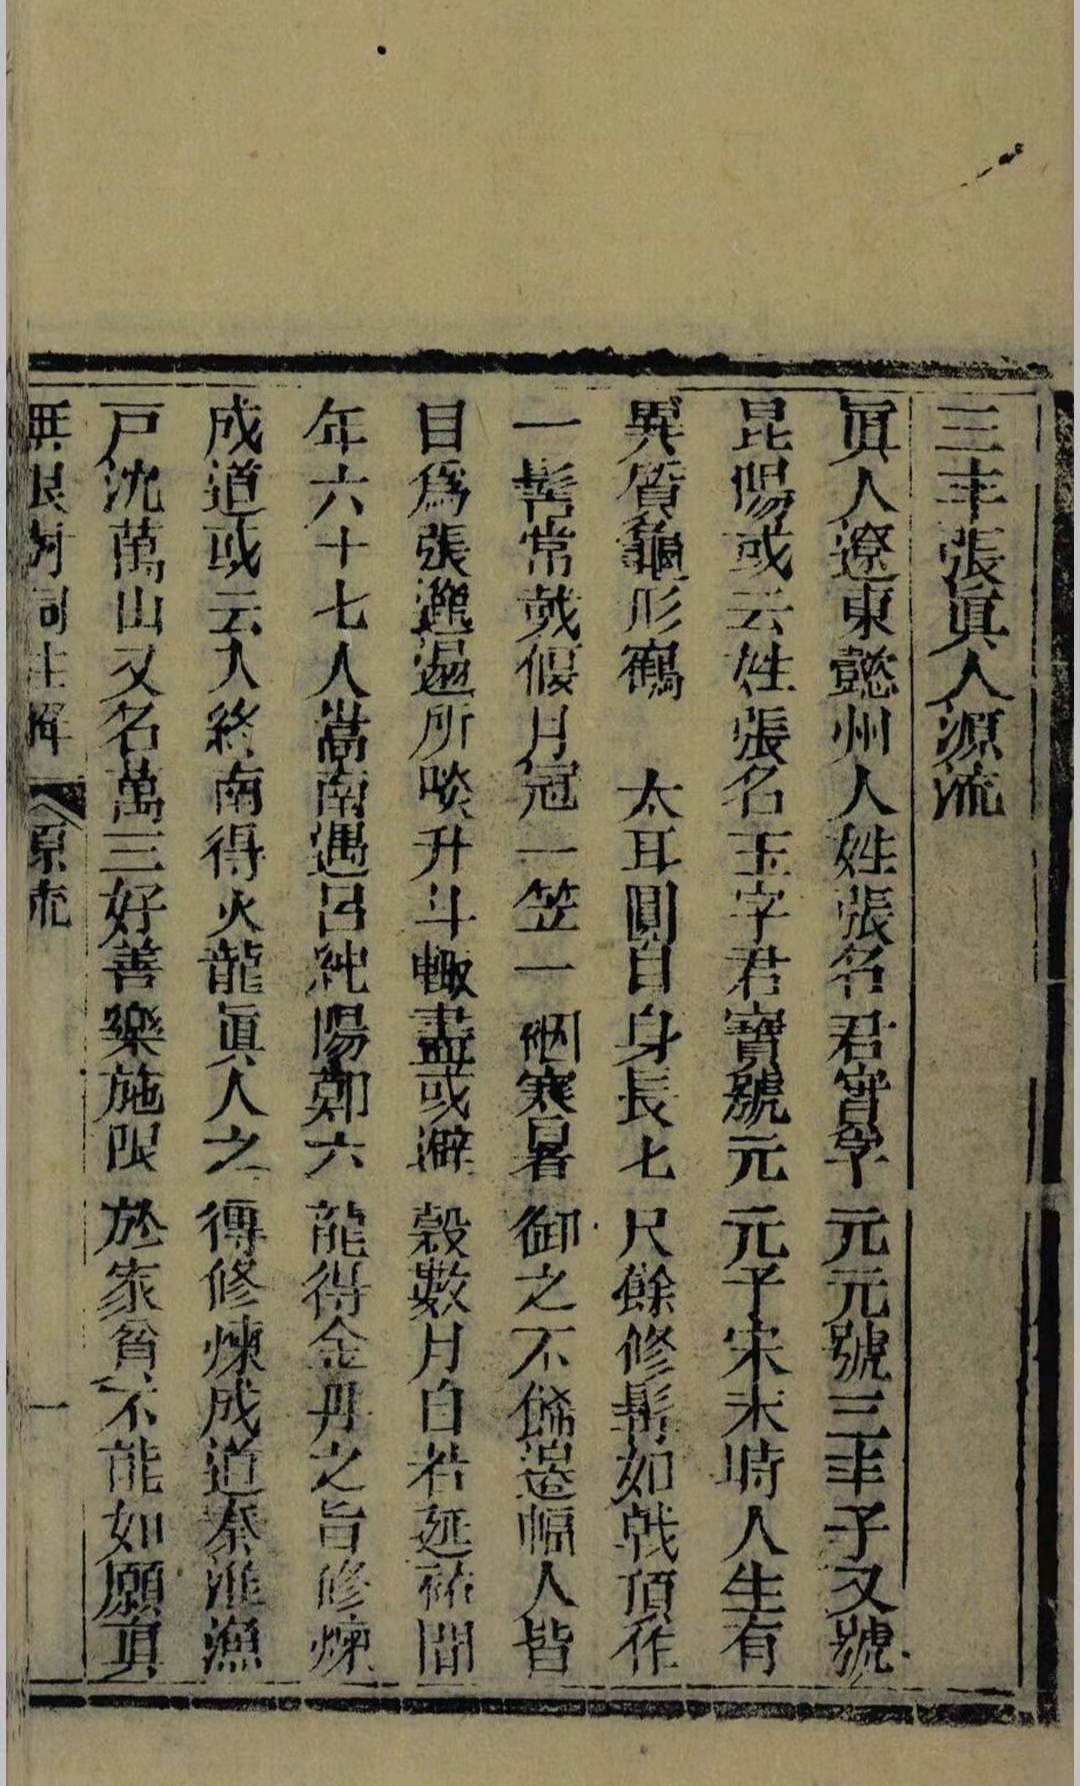 三丰張眞人源流
眞人遼東懿州人姓張名君實字元元號三丰子又號
昆陽或云姓張名玉字君寶號元元子宋末時人生有
異質龜形鶴　太耳圓目身長七尺餘修髯如戟頂作
一髻常戴偃月冠一笠一衲寒暑御之不餙邉幅人皆
目爲張邋遢所啖升斗輙盡或辟穀數月自若延祐間
年六十七人嵩南遇呂純陽鄭六龍得金丹之旨修煉
成道或云入終南得火龍眞人之傳修煉成道秦淮漁
戸沈萬山又名萬三好善樂施限於家貧不能如願眞
無根樹詞註解　源流　一